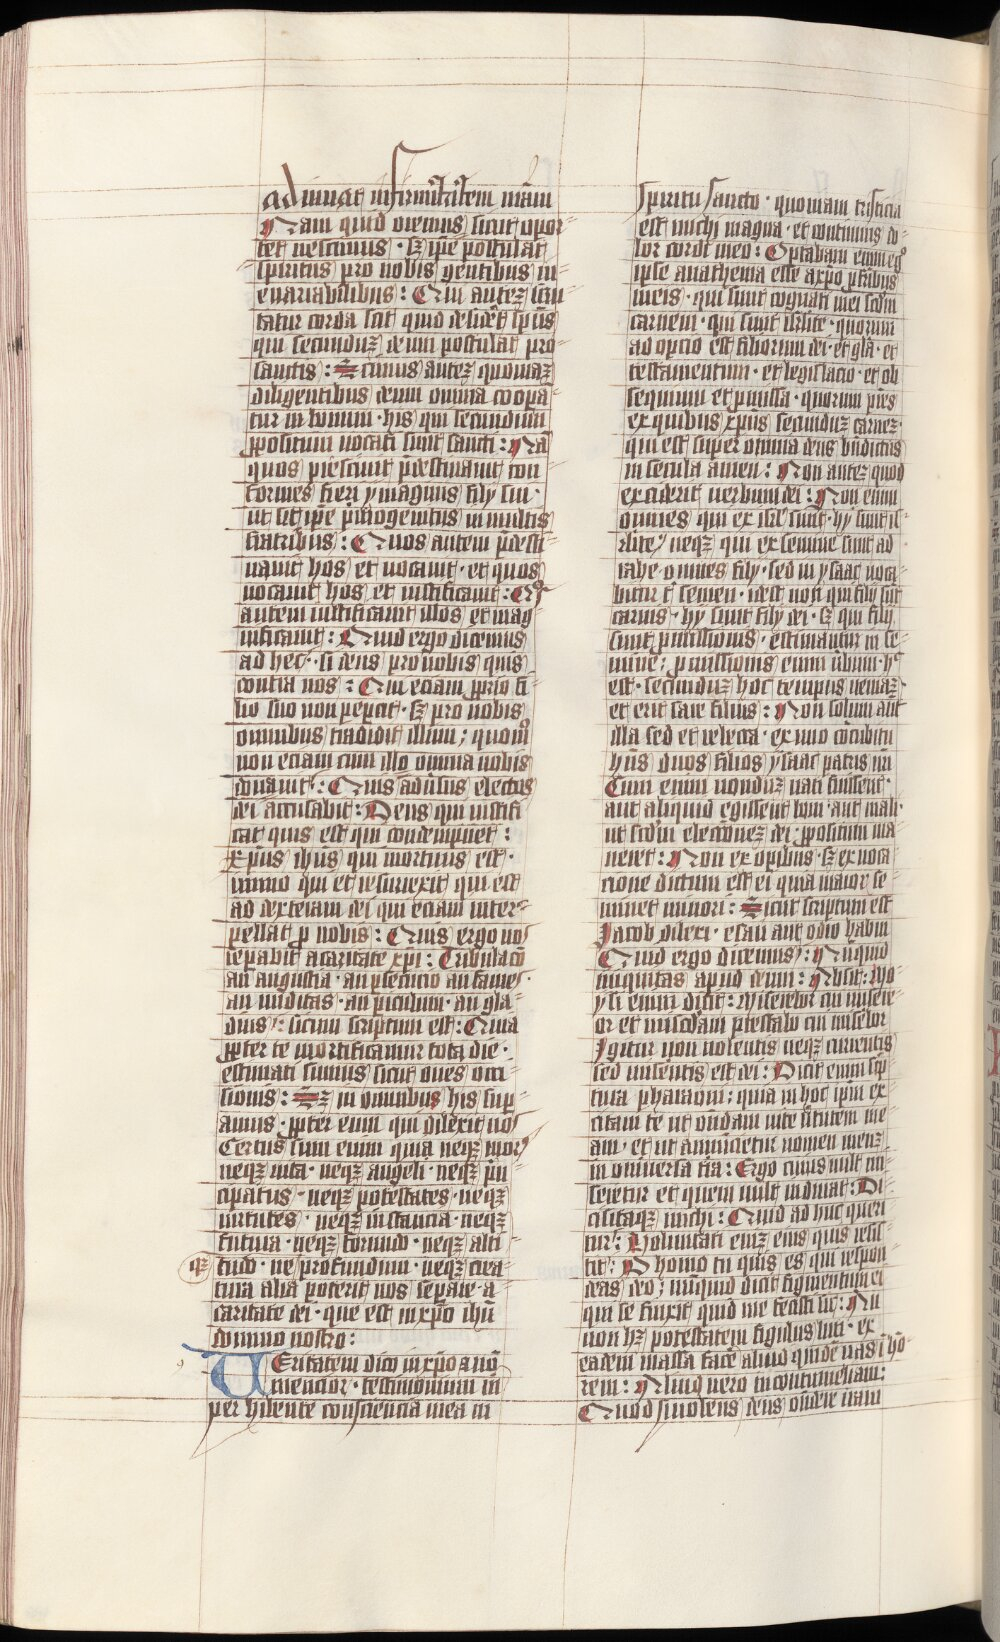 adiuuat infirmitatem nr̄am
Nam quid oremus sicut opor
tet nescimus · sꝫ ip̄e postulat
spiritus pro nobis gemitibus in
enarrabilibus : Qui auteꝫ scru
tatur corda scit quid desidet sp̄us
qui secunduꝫ deum postulat pro
sanctis : Scimus auteꝫ quoniaꝫ
diligentibus deum omnia coopa
tur in bonum · his qui secundum
ꝓpositum uocati sunt sancti : Nā
quos presciuit p̄destinauit con
formes fieri ymaginis filij sui ·
ut sit ip̄e pͥmogenitus in multis
fratribus : Quos autem p̄desti
nauit hos et uocauit · et quos
uocauit hos et iustificauit : Qͦs
autem iustificauit illos et mag
nificauit : Quid ergo dicemus
ad hec · si deus pro nobis quis
contra nos : Qui eciam ꝓprio fi
lio suo non peꝑcit · sꝫ pro nobis
omnibus tradidit illum ; quomͦ
non eciam cum illo omnia nobis
donauit : Quis adūsus electos
dei accusabit : Deus qui iustifi
cat quis est qui condempnet :
xp̄us ih̄us qui mortuus est ·
immo qui et resurrexit qui est
ad dexteram dei qui eciam inter
pellat ꝓ nobis : Quis ergo nos
separabit a caritate xp̄i : Tribulacō
an angustia · an ꝑsecucio an fames ·
an nuditas · an ꝑiculum · an gla
dius : sicuti scriptum est : Quia
ꝓpter te mortificamur tota die ·
estimati sumus sicut oues occi
sionis : Sꝫ in omnibus his sup
amus · ꝓpter eum qui dilexit nos
Certus sum enim quia neqꝫ mors
neqꝫ uita · neqꝫ angeli · neqꝫ pͥn
cipatus · neqꝫ potestates · neqꝫ
uirtutes · neqꝫ instancia · neqꝫ
futura · neqꝫ fortitudo · neqꝫ alti
tudo · neqꝫ profundum · neqꝫ crea
tura alia poterit nos separare a
caritate dei · que est in xp̄o ih̄u
domino nostro :
UEritatem dico in xp̄o ⁊ nō
mencior · testimonium m̄
per hibente consciencia mea in
spiritu sancto · quoniam tristicia
est michi magna · et continuus do
lor cordi meo : Optabam enim egͦ
ipse anathema esse a xp̄o ꝓ fr̄ibus
meis · qui sunt cognati mei scd̄m
carnem · qui sunt isr̄lite · quorum
adopcio est filiorum dei · et gl̄a · et
testamentum · et legislacio · et ob
sequium et ꝓmissa · quorum pr̄es
ex quibus xp̄us secunduꝫ carneꝫ ·
qui est super omnia deus bn̄dictus
in secula amen : Non auteꝫ quod
exciderit uerbum dei : Non enim
omnes qui ex isrl̄ sunt · hy sunt is
rl̄ite / neqꝫ qui ex semine sunt ab
rahe omnes filij · sed in ysaac uoca
bitur tͥ semen · id est non qui filij sūt
carnis · hy sunt filij dei · sꝫ qui filij
sunt ꝓmissionis · estimantur in se
mine ; ꝓmissionis enim ūbum · hͦ
est · secunduꝫ hoc tempus ueniaꝫ ·
et erit sare filius : Non solum aūt
illa sed et rebecca · ex uno cōcubitu
hn̄s duos filios ysaac patris nr̄i
Cum enim nonduꝫ nati fuissent ·
aut aliquid egissent boni · aut mali ·
ut scd̄m electioneꝫ dei ꝓpositum ma
neret : Non ex oꝑibus · sꝫ ex uoca
cione dictum est ei quia maior se
ruiet minori : Sicut scriptum est
Jacob dilexi · esau aut odio habui
Quid ergo dicemus / : Nūquid
iniquitas apud deum : Absit : Mo
ysi enim dicit : Miserebor cui misere
or et miscd̄iam prestabo cui miserebor
Igitur non uolentis neqꝫ currentis
sed miserentis est dei : Dicit enim scͥp
tura pharaoni ; quia in hoc ip̄m ex
citaui te ut ostēdam in te ūtutem me
am · et ut annuncietur nomen meuꝫ
in uniuersa tr̄a : Ergo cuius uult mi
seretur et quem uult indurat : Di
cis itaqꝫ michi : Quid ad huc queri
tur : Voluntati enim eius quis resis
tit : O homo tu quis es qui respon
deas deo ; nūquid dicit figmentum ei
qui se finxit quid me fecisti sic : An
non hꝫ potestatem figulus luti · ex
eadem massa facē aliud quidē uas ī hō
rem : Aliud uero in contumeliam :
Quod si uolens deus ostendere iram